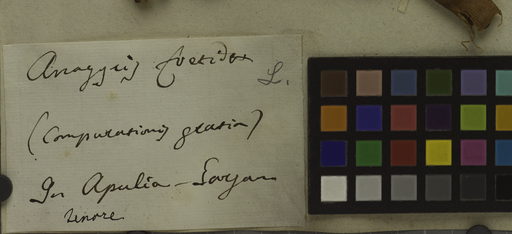 Anagyris foetida
L.
(Comparationis gratia)
In Apulia –
Tenore